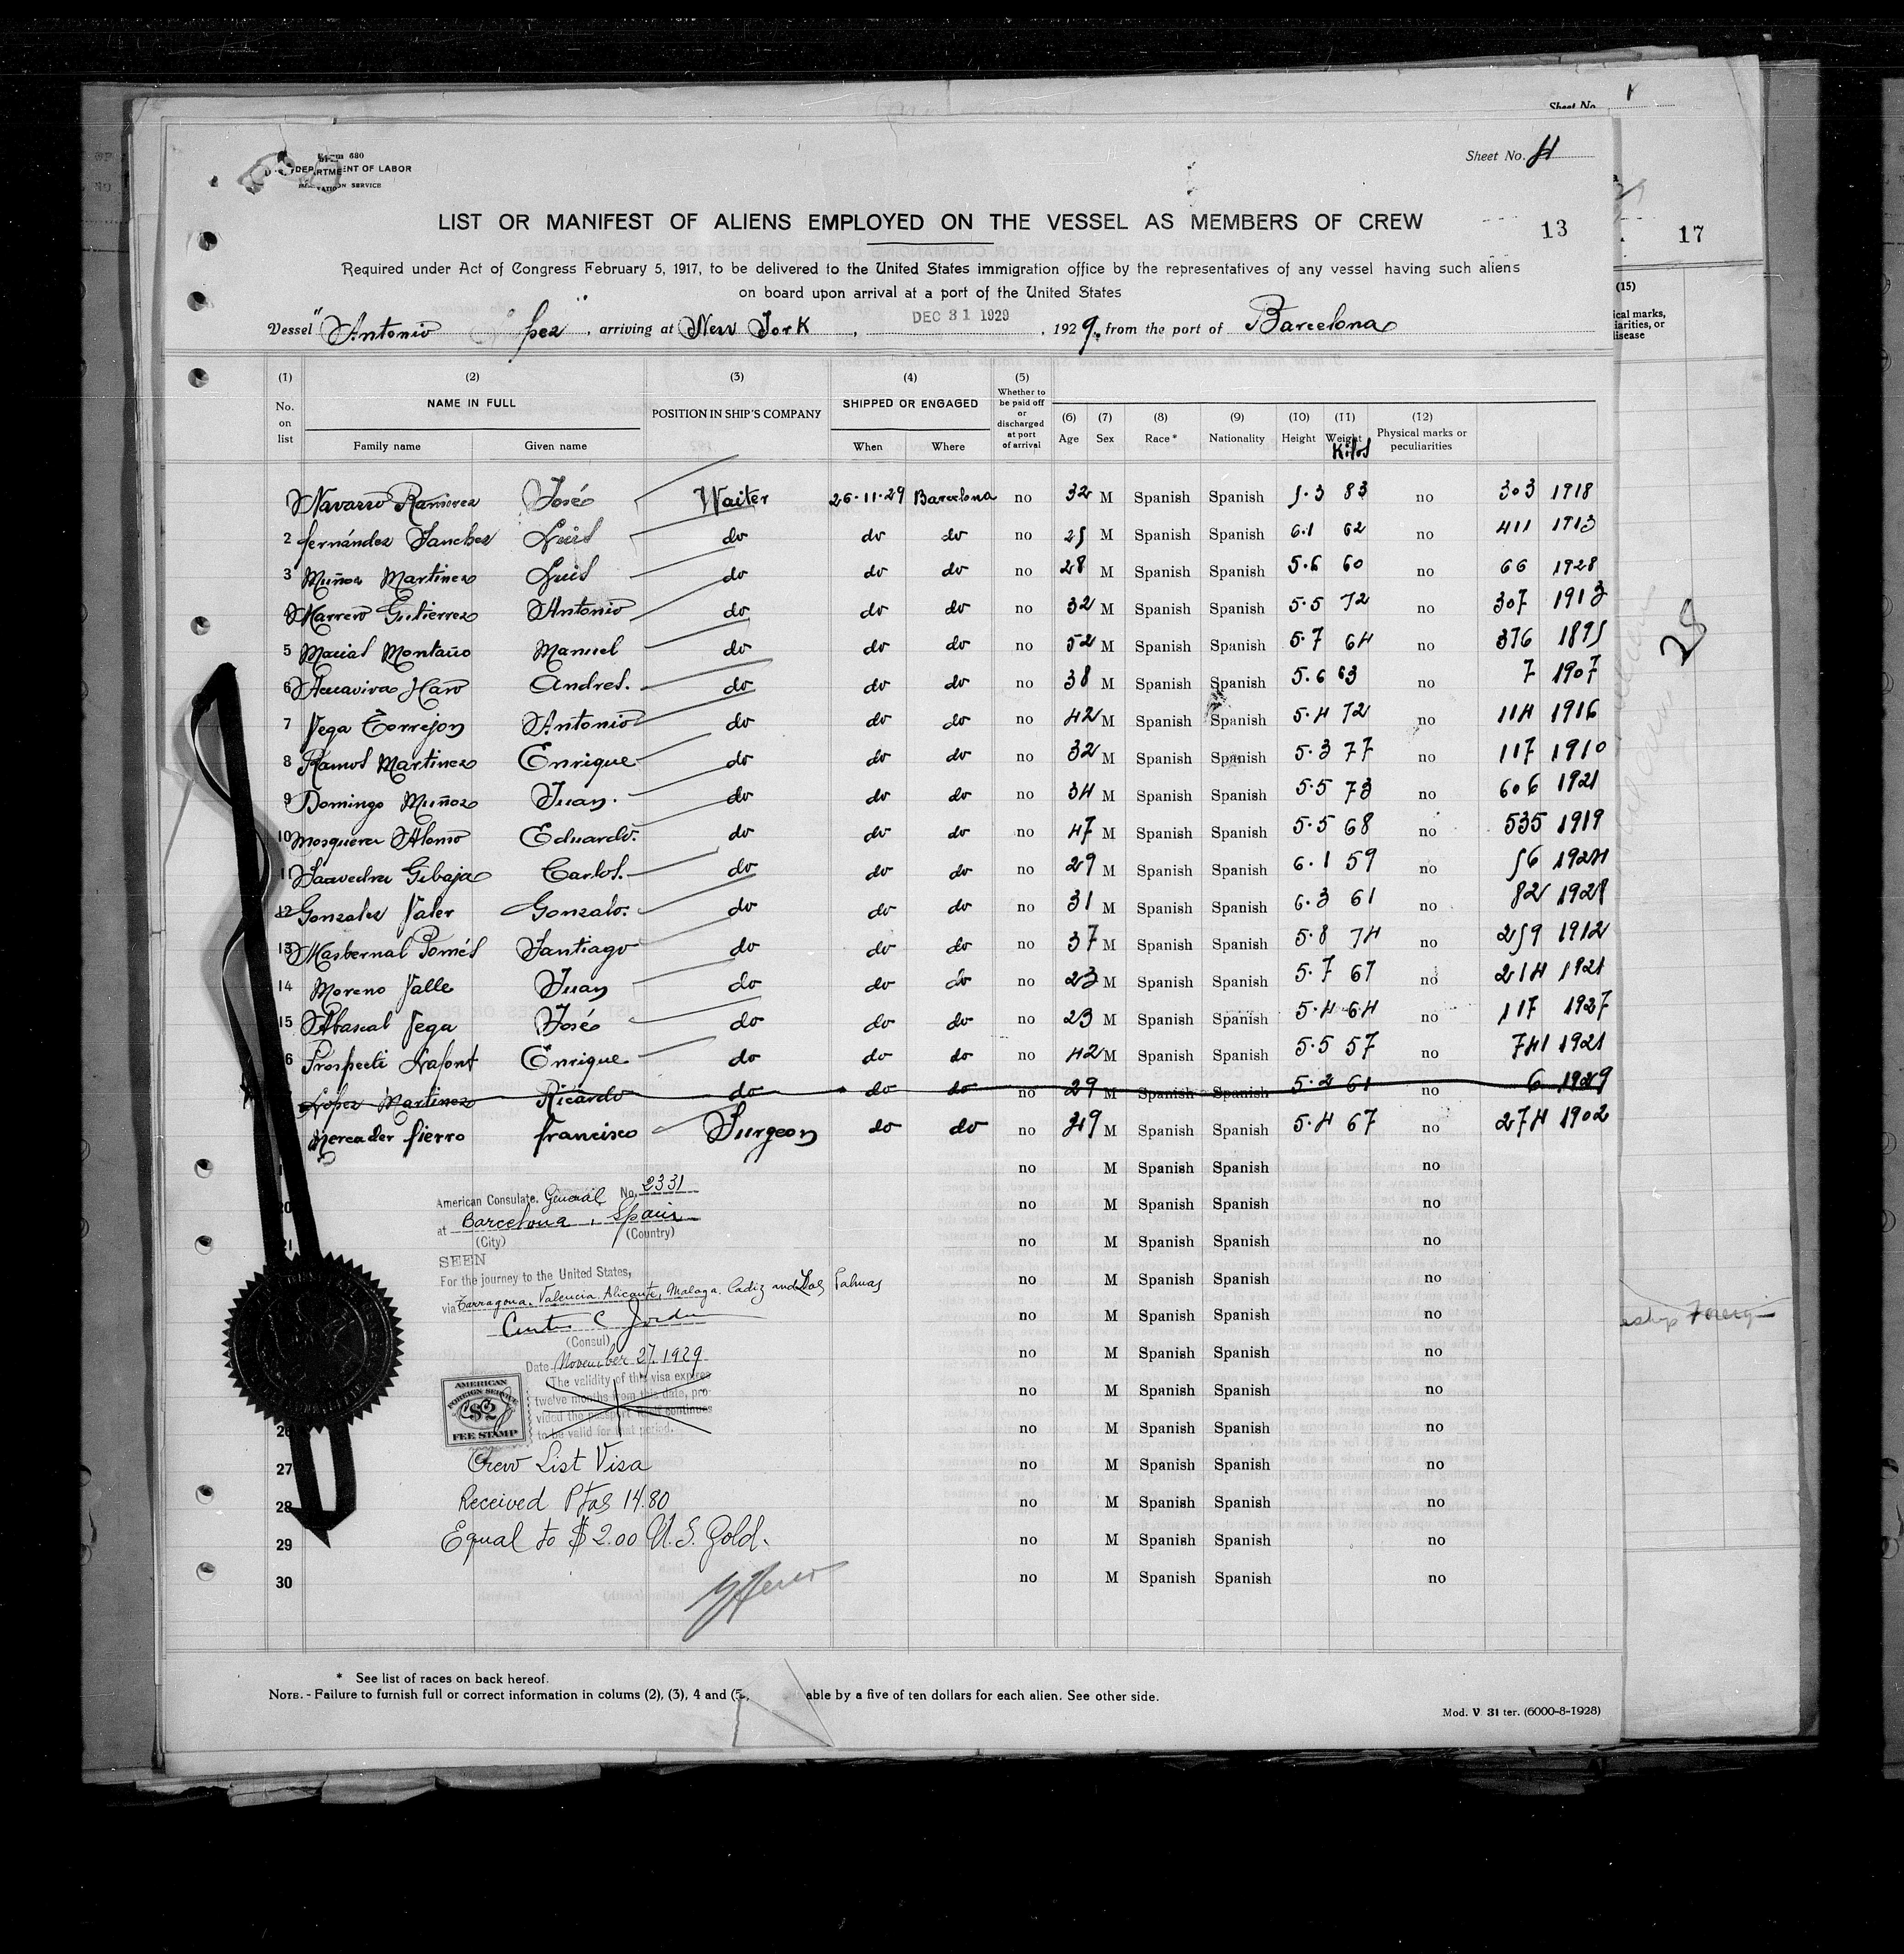 Sheet No. 1
Form 680
DEPARTMENT OF LABOR
SERVICE
Sheet No. 4
LIST OR MANIFEST OF ALIENS EMPLOYED ON THE VESSEL AS MEMBERS OF CREW
13
17
Required under Act of Congress February 5, 1917, to be delivered to the United States immigration office by the representatives of any vessel having such aliens
on board upon arrival at a port of the United States
Vessel "Antonio pez", arriving at New York, DEC 31 1929, 1929, from the port of Barcelona
(15)
ical marks,
iarities, or
disease
(1) (2) (3) (4) (5)
No. on list NAME IN FULL POSITION IN SHIP'S COMPANY SHIPPED OR ENGAGED Whether to be paid off or discharged at port of arrival (6) (7) (8) (9) (10) (11) (12)
Family name Given name When Where Age Sex Race * Nationality Height Weight Kilos Physical marks or peculiarities
Navarro Ramirez José Waiter 26-11-29 Barcelona no 32 M Spanish Spanish 5.3 83 no 303 1918
2 Fernández Sanchez Luis do do do no 25 M Spanish Spanish 6.1 62 no 411 1913
3 Muñoz Martinez Luis do do do no 28 M Spanish Spanish 5.6 60 no 66 1928
Marrero Gutierrez Antonio do do do no 32 M Spanish Spanish 5.5 72 no 307 1913
5 Macial Montaño Manuel do do do no 52 M Spanish Spanish 5.7 64 no 376 1895
6 Acuaviva Haro Andres. do do do no 38 M Spanish Spanish 5.6 63 no 7 1907
7 Vega Torrejon Antonio do do do no 42 M Spanish Spanish 5.4 72 no 114 1916
8 Ramos Martinez Enrique do do do no 32 M Spanish Spanish 5.3 77 no 117 1910
9 Domingo Muñoz Juan. do do do no 34 M Spanish Spanish 5.5 73 no 606 1921
10 Mosquera Alonso Eduardo. do do do no 47 M Spanish Spanish 5.5 68 no 535 1919
11 Saavedra Gibaja Carlos. do do do no 29 M Spanish Spanish 6.1 59 no 56 1924
12 Gonzalez Valer Gonzalo. do do do no 31 M Spanish Spanish 6.3 61 no 82 1928
13 Masbernal Pomés Santiago do do do no 37 M Spanish Spanish 5.8 74 no 259 1912
14 Moreno Valle Juan do do do no 23 M Spanish Spanish 5.7 67 no 214 1921
15 Abascal Vega José do do do no 23 M Spanish Spanish 5.4 64 no 117 1927
6 Prosperti Lafont Enrique do do do no 42 M Spanish Spanish 5.5 57 no 741 1921
López Martinez Ricardo do do do no 29 M Spanish Spanish 5.2 61 no 6 1929
Mercader Fierro Francisco Surgeon do do no M Spanish Spanish 5.4 67 no 274 1902
no M Spanish Spanish no
20 no M Spanish Spanish no
21 no M Spanish Spanish no
no M Spanish Spanish no
no M Spanish Spanish no
no M Spanish Spanish no
no M Spanish Spanish no
26 no M Spanish Spanish no
27 no M Spanish Spanish no
28 no M Spanish Spanish no
29 no M Spanish Spanish no
30 no M Spanish Spanish no
American Consulate. General No. 2331
at Barcelona, Spain
(City) (Country)
SEEN
For the journey to the United States,
via Tarragona, Valencia, Alicante, Malaga, Cadiz and Las Palmas
(Consul)
Date November 27, 1929
(The validity of this visa expires
twelve months from this date, pro-
vided the passport itself continues
to be valid for that period.
AMERICAN
FOREIGN SERVICE
$2
FEE STAMP
Crew List Visa
Received Ptas 14.80
Equal to $2.00 U.S. Gold.
* See list of races on back hereof.
NOTE. - Failure to furnish full or correct information in colums (2), (3), 4 and (5, able by a five of ten dollars for each alien. See other side.
Mod. V 31 ter. (6000-8-1928)